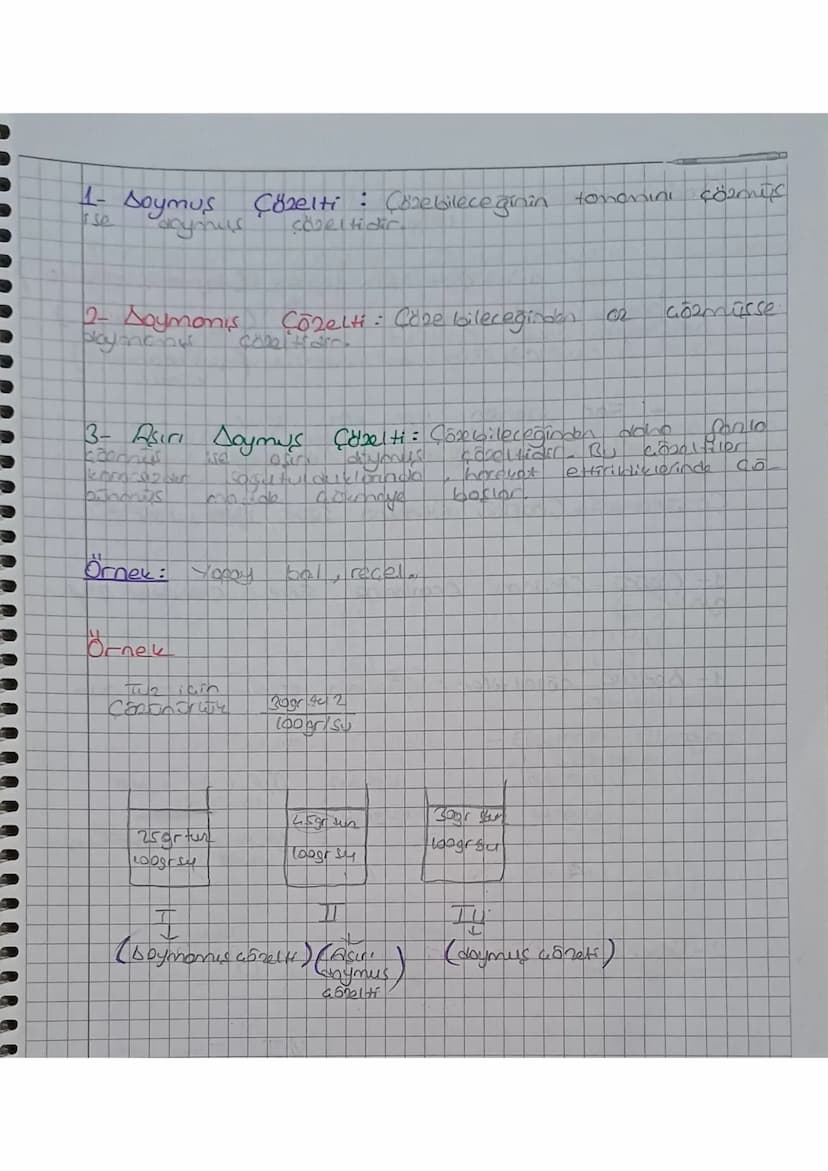 1- Doymuş Çözelti : Çözebileceğinin tamamını çözmüş
ise doymuş çözeltidir.
2- Doymamış Çözelti : Çözebileceğinden az çözmüşse
doymamış çözeltidir.
3- Aşırı Doymuş Çözelti : Çözebileceğinden daha fazla
çözmüş ise aşırı doymuş çözeltidir. Bu çözeltiler
soğutulduklarında, hareket ettirildiklerinde çö-
başlar.
Örnek: Yapay bal, reçel..
Örnek
Tuz için
Çözünürlük
30gr tuz
100gr/su
25gr tuz
100gr su
45gr
100gr su
30gr
100gr su
I
II
(Doymamış çözelti)
(Aşırı
doymuş
çözelti)
(doymuş çözelti)